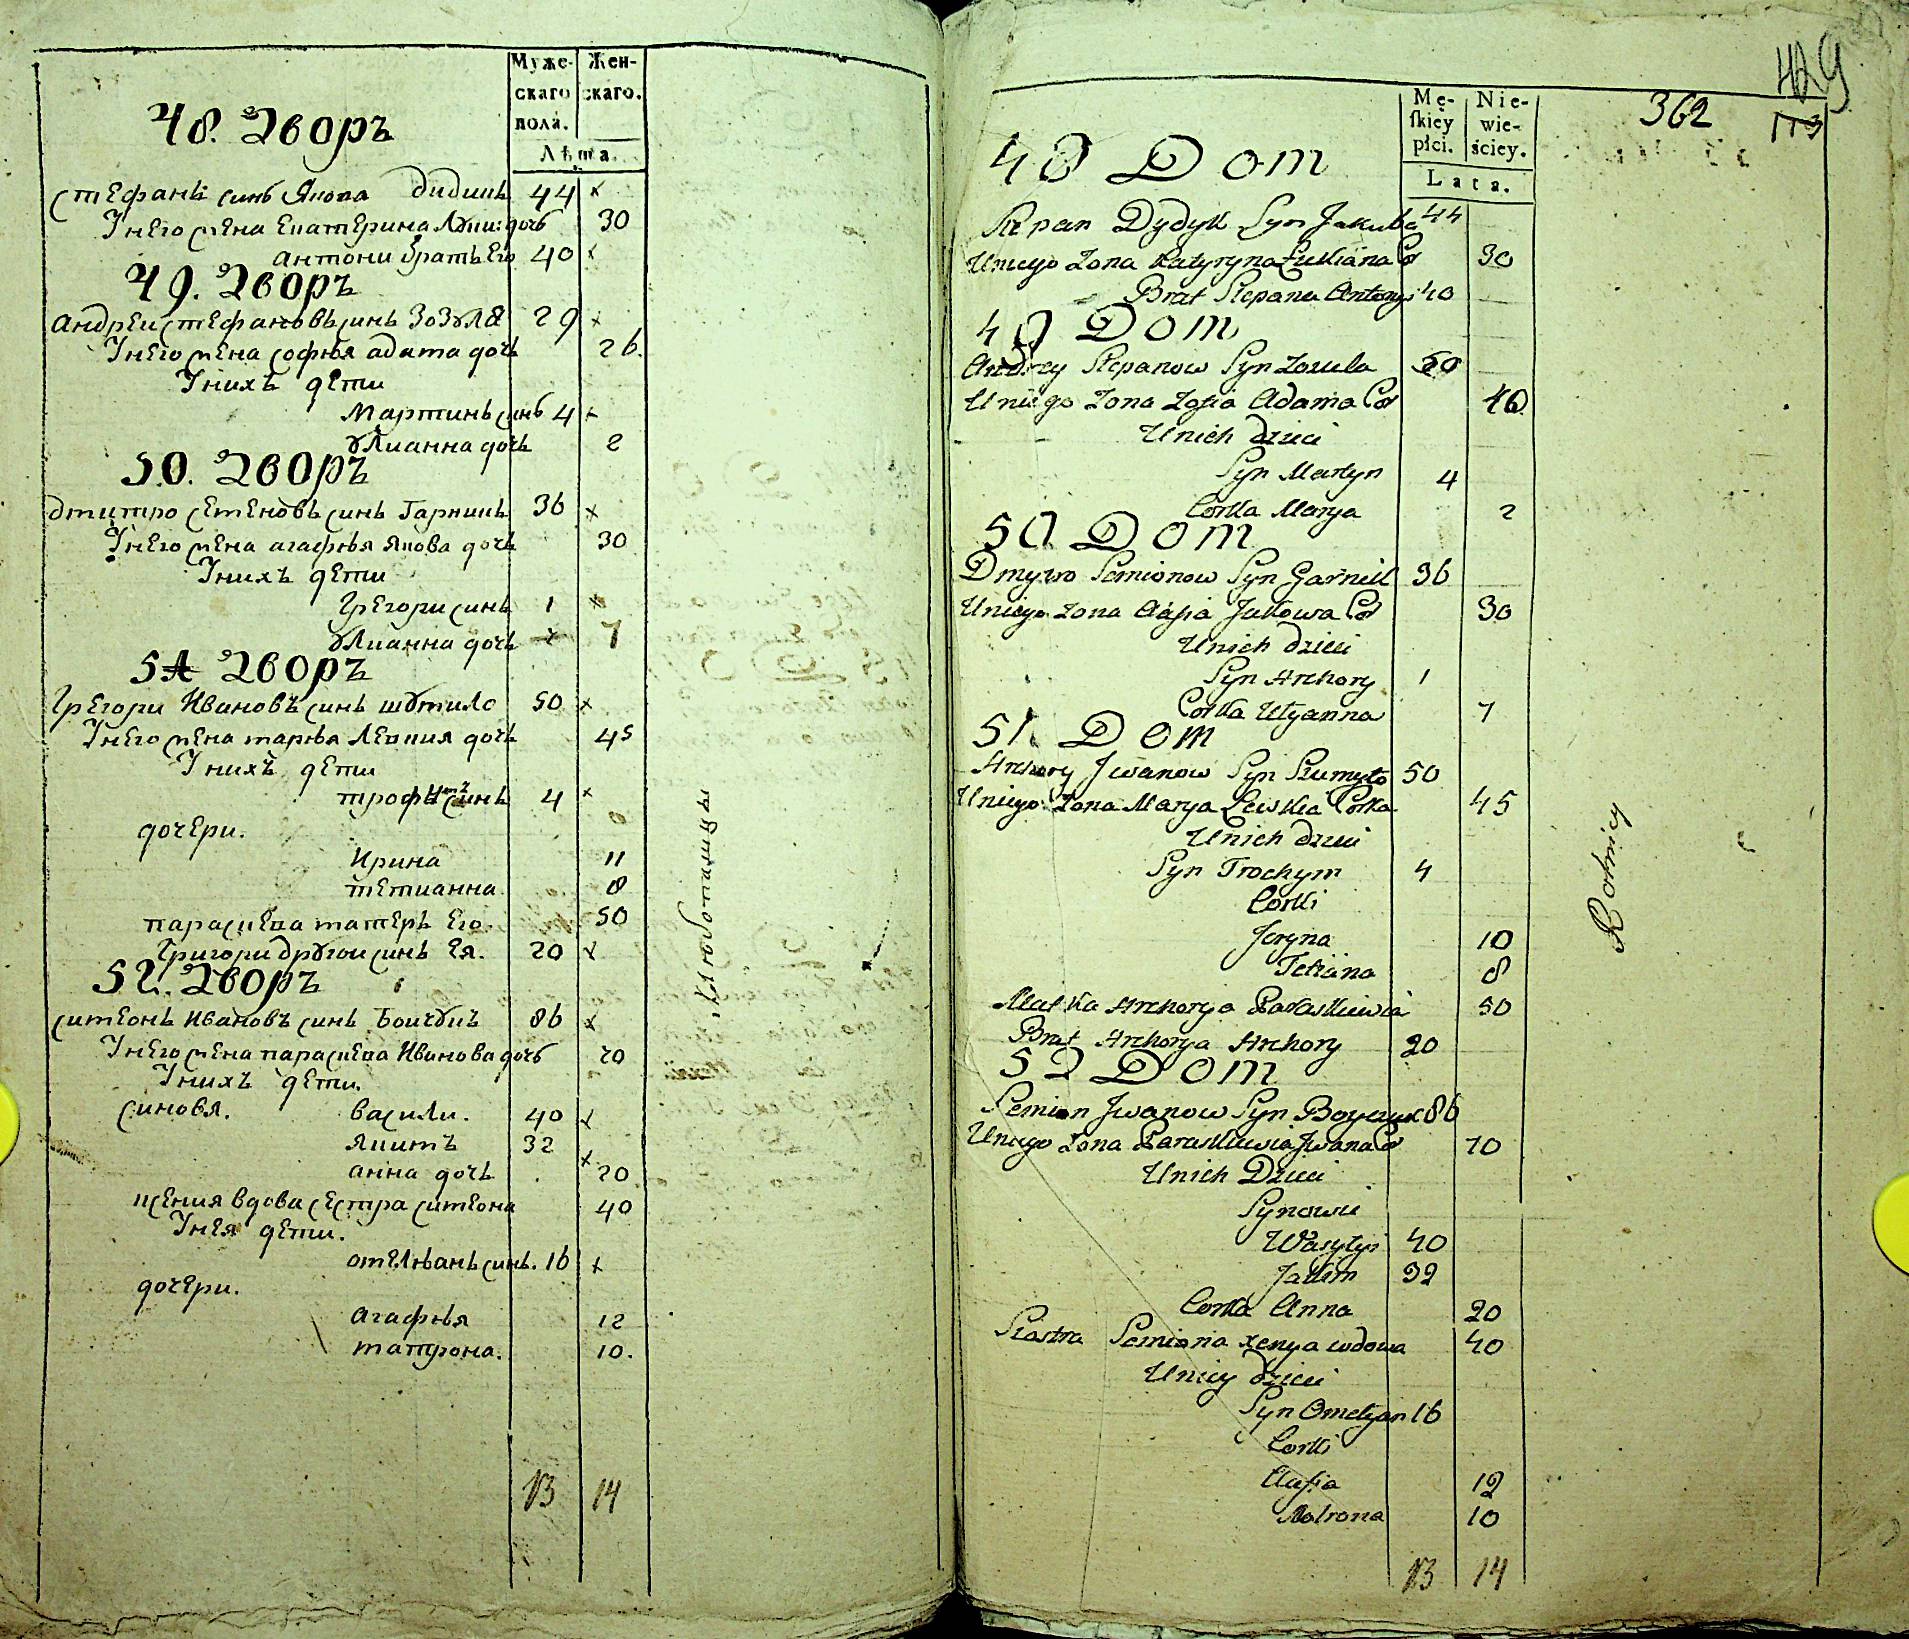 Муже- Жен-
скаго скаго.
пола.
Лѣта.
48. Дворъ
Стефанъ синъ Якова Дидикъ 44 x
У него жена Екатерина Лукi: дочъ 30
Антони братъ Его 40 x
49. Дворъ
Андреи Стефановъ синъ Зозуля 29 x
У него жена Софья Адама дочъ 26.
У нихъ дети
Мартинъ синъ 4 x
Улианна дочъ 2
50. Дворъ
Дмитро Семеновъ синъ Гарникъ 36 x
У него жена Агафья Якова дочъ 30
У нихъ дети
Грегори синъ 1 x
Улианна дочъ 7
51 Дворъ
Грегори Ивановъ синъ Шумило 50 x
У него жена Маръя Левкия дочъ 45
У нихъ дети
Трофимъ синъ 4 x
дочери.
Ирина 11
Тетианна 8
Параскева матеръ Его. 50
Григори другои синъ Ея. 20 x
52. Дворъ
Симеонъ Ивановъ синъ Боичукъ 86 x
У него жена Параскева Иванова дочъ 70
У нихъ дети.
Синовя. Васили. 40 x
Якимъ 32 x
Анна дочъ 20
Ксения вдова сестра Симеона 40
У нея дети.
Омелянъ синъ. 16 x
дочери.
Агафья 12
Матрона. 10.
13 14
Хлѣбопашцы
429
362
113
Mę- Nie-
ſkiey wie-
płci. ściey.
Lata.
48 Dom
Stepan Dydyk Syn Jakuba 44
U niego Zona Katyryna Łukiana Cor 30
Brat Stepana Antonyi 40
49 Dom
Andrey Stepanow Syn Zozula
U niego Zona Zofia Adama Cor
U nich dzieci
Syn Martyn 4
Corka Marya 2
50 Dom
Dmytro Semionow Syn Garnik 36
U niego Zona Aafia Jakowa Cor 30
U nich dzieci
Syn Hrehory 1
Corka Ulyanna 7
51. Dom
Hrehory Jwanow Syn Szumyło 50
U niego Zona Marya Lewkia Corka 45
U nich dzieci
Syn Trochym 4
Corki
Jeryna 10
Tetiana 8
Matka Hrehorya Paraskiewia 50
Brat Hrehorya Hrehory 20
52 Dom
Semion Jwanow Syn Boyczuk 86
U niego Zona Paraskiewia Jwana Cor 70
U nich Dzieci
Synowie
Wasylyi 40
Jakim 32
Corka Anna 20
Siostra Semiona Xenya wdowa 40
U niey dzieci
Syn Omelyan 16
Corki
Aafia 12
Motrona 10
13 14
Rolnicy